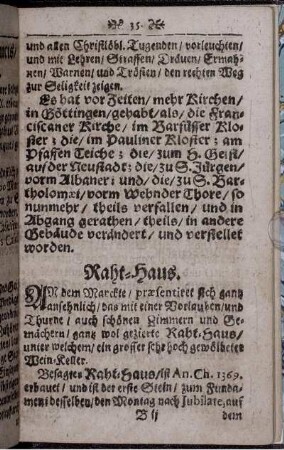 35.
und allen Christlöbl. Tugenden/ vorleuchten/
und mit Lehren/ Straffen/ Dräuen/ Ermah-
nen/ Warnen/ und Trösten/ den rechten Weg
zur Seligkeit zeigen.
Es hat vor Zeiten/ mehr Kirchen/
in Göttingen/ gehabt/ als/ die Fran-
ciscaner Kirche/ im Barfüsser Klo-
ster; die/ im Pauliner Kloster; am
Pfaffen Teiche; die/ zum H. Geist/
auf der Neustadt; die/ zu S. Jürgen/
vorm Albaner; und/ die/ zu S. Bar-
tholomæi/ vorm Wehnder Thore/ so
nunmehr/ theils verfallen/ und in
Abgang gerathen/ theils/ in andere
Gebäude verändert/ und verstellet
worden.
Raht-Haus.
AN dem Marckte/ præsentiret sich gantz
ansehnlich/ das mit einer Vorlauben/ und
Thurne/ auch schönen Zimmern und Ge-
mächern/ gantz wol gezierte Raht-Haus/
unter welchem/ ein grosser sehr hoch gewölbeter
Wein-Keller.
Besagtes Raht-Haus/ ist An. Ch. 1369.
erbauet/ und ist der erste Stein/ zum Funda-
ment desselben/ den Montag nach Jubilate/ auf
B ij dem